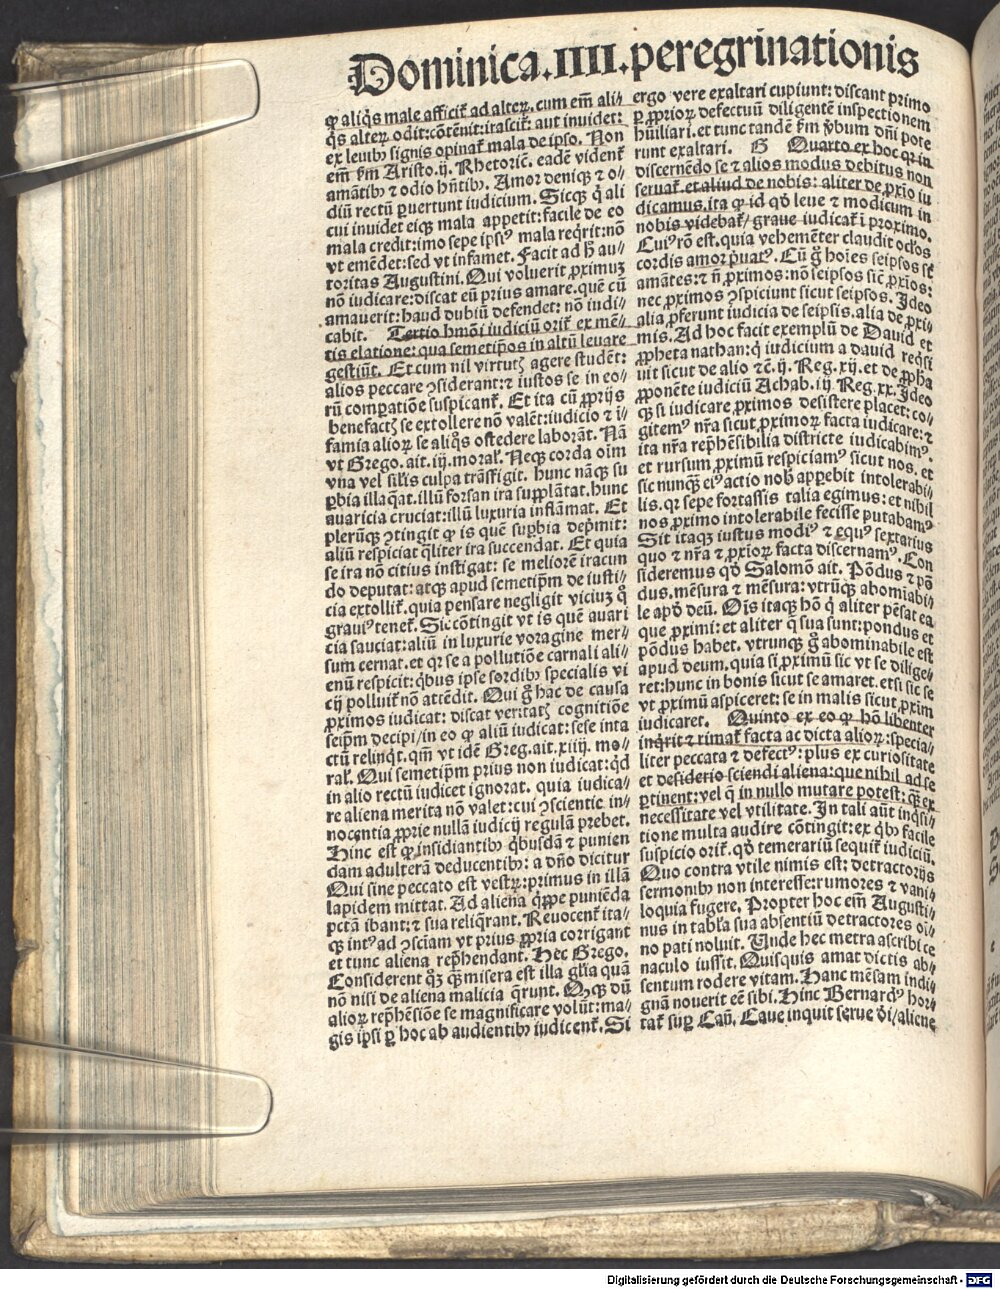 Dominica.IIII.peregrinationis
ꝙ aliq̃s male afficit᷑ ad alteꝝ. cum em̃ ali⸗
q̃s alteꝝ odit:cõtẽnit:irascit᷑: aut inuidet:
ex leuibꝰ signis opinat᷑ mala de ipso. Non
em̃ ẜm Aristo.ij. Rhetoric̃. eadẽ vident᷑
amãtibꝰ ⁊ odio hñtibꝰ. Amor deniqꝫ ⁊ o⸗
diũ rectũ ꝑuertunt iudicium. Sicqꝫ q̃ ali
cui inuidet eiqꝫ mala appetit:facile de eo
mala credit:imo sepe ipsiꝰ mala req̃rit:nõ
vt emẽdet:sed vt infamet. Facit ad h̃ au⸗
toritas Augustini. Qui voluerit ꝓximuꝫ
nõ iudicare:discat eũ prius amare.quẽ cũ
amauerit:haud dubiũ defendet: nõ iudi⸗
cabit. Tertio hmõi iudiciũ orit᷑ ex mẽ⸗
tis elatione:qua semetip̃os in altũ leuare
gestiũt. Et cum nil virtutꝭ agere studẽt:
alios peccare ꝯsiderant:⁊ iustos se in eo⸗
rũ comꝑatiõe suspicant᷑. Et ita cũ ꝓprijs
benefactꝭ se extollere nõ valẽt:iudicio ⁊ ĩ⸗
famia alioꝝ se aliq̃s ostẽdere laborãt. Nã
vt Grego.ait.iij.moral᷑. Neqꝫ corda oĩm
vna vel sil̃is culpa trãsfigit. hunc nãqꝫ su
ꝑbia illaq̃at.illũ forsan ira supplãtat.hunc
auaricia cruciat:illũ luxuria inflãmat. Et
plerũqꝫ ꝯtingit ꝙ is quẽ suꝑbia dep̃mit:
aliũ respiciat q̃liter ira succendat. Et quia
se ira nõ citius instigat: se meliorẽ iracun
do deputat: atqꝫ apud semetip̃m de iusti⸗
cia extollit᷑.quia pensare negligit viciuꝫ q̊
grauiꝰ tenet᷑. Sic cõtingit vt is quẽ auari
cia sauciat:aliũ in luxurie voragine mer⸗
sum cernat.et qꝛ se a pollutiõe carnali ali⸗
enũ respicit:q̃bus ipse sordibꝰ specialis vi
cij polluit᷑ nõ attẽdit. Qui g̊ hac de causa
ꝓximos iudicat: discat veritatꝭ cognitiõe
seip̃m decipi/in eo ꝙ aliũ iudicat:sese inta
ctũ relinq̃t.qm̃ vt idẽ Greg.ait.xiiij. mo⸗
ral᷑. Qui semetip̃m prius non iudicat:q̃d
in alio rectũ iudicet ignorat. quia iudica⸗
re aliena merita nõ valet:cui ꝯscientie in⸗
nocentia ꝓprie nullã iudicij regulã prebet.
Hinc est ꝙ insidiantibꝰ q̃busdã ⁊ punien
dam adulterã deducentibꝰ: a dño dicitur
Qui sine peccato est vestꝝ:primus in illã
lapidem mittat. Ad aliena q̃ppe puniẽda
pctã ibant:⁊ sua reliq̃rant. Reuocent᷑ ita⸗
qꝫ intꝰ ad ꝯsciam vt prius ꝓpria corrigant
et tunc aliena rep̃hendant. Hec Grego.
Considerent qꝫ̃ qꝫ̃misera est illa gl̃ia quã
nõ nisi de aliena malicia q̃runt. Oẽqꝫ dũ
alioꝝ rep̃hẽsiõe se magnificare volũt:ma⸗
gis ip̃i ꝑ hoc ab audientibꝰ iudicent᷑. Si
ergo vere exaltari cupiunt:discant primo
ꝑ ꝓprioꝝ defectuũ diligentẽ inspectionem
hũiliari.et tunc tandẽ ẜm v̓bum dñi pote
runt exaltari. G Quarto ex hoc qꝛ in
discernẽdo se ⁊ alios modus debitus non
seruat᷑.et aliud de nobis: aliter de ꝓxĩo iu
dicamus.ita ꝙ id qd̓ leue ⁊ modicum in
nobis videbat᷑/graue iudicat᷑ ĩ proximo.
Cuiꝰ rõ est.quia vehemẽter claudit ocl̓os
cordis amor p̃uatꝰ. Cũ g̊ hoĩes seipsos sꝫ
amãtes:⁊ ñ ꝓximos:nõ seipsos sic̃ ꝓxĩos:
nec ꝓximos ꝯspiciunt sicut seipsos. Ideo
alia ꝓferunt iudicia de seipsis.alia de ꝓxi⸗
mis. Ad hoc facit exemplũ de Dauid et
ꝓpheta nathan:q̃ iudicium a dauid req̃si
uit sicut de alio ⁊c̃.ij. Reg.xij.et de ꝓpha
ꝓponẽte iudiciũ Achab.iij. Reg.xx. Ideo
qꝫ si iudicare ꝓximos desistere placet:co⸗
gitemꝰ nr̃a sicut ꝓximoꝝ facta iudicare:⁊
ita nr̃a rep̃hẽsibilia districte iudicabimꝰ.
et rursum ꝓximũ respiciamꝰ sicut nos. et
sic nunqꝫ̃ eiꝰ actio nob̃ apꝑebit intolerabi⸗
lis. qꝛ sepe fortassis talia egimus:et nihil
nos ꝓximo intolerabile fecisse putabamꝰ
Sit itaqꝫ iustus modiꝰ ⁊ equꝰ sextarius
quo ⁊ nr̃a ⁊ ꝓxioꝝ facta discernamꝰ. Con
sideremus qd̓ Salomõ ait. Põdus ⁊ põ
dus.mẽsura ⁊ mẽsura: vtrũqꝫ abomiabi⸗
le apd̓ deũ. Oĩs itaqꝫ hõ q̃ aliter pẽsat ea
que ꝓximi:et aliter q̃ sua sunt:pondus et
põdus habet. vtrunqꝫ g̊ abominabile est
apud deum. quia si ꝓximũ sic vt se dilige⸗
ret:hunc in bonis sicut se amaret.etsi sic se
vt ꝓximũ aspiceret: se in malis sicut ꝓxim
iudicaret. Quinto ex eo ꝙ hõ libenter
inq̃rit ⁊ rimat᷑ facta ac dicta alioꝝ:specia⸗
liter peccata ⁊ defectꝰ: plus ex curiositate
et desiderio sciendi aliena:que nihil ad se
ꝑtinent:vel q̃ in nullo mutare potest: qꝫ̃ ex
necessitate vel vtilitate. In tali aũt inq̃si⸗
tione multa audire cõtingit:ex q̃bꝰ facile
suspicio orit᷑. qd̓ temerariũ sequit᷑ iudiciũ.
Quo contra vtile nimis est: detractorijs
sermonibꝰ non interesse:rumores ⁊ vani⸗
loquia fugere. Propter hoc em̃ Augusti⸗
nus in tabl̓a sua absentiũ detractores oĩ⸗
no pati noluit. Unde hec metra ascribi ce
naculo iussit. Quisquis amat dictis ab⸗
sentum rodere vitam. Hanc mẽsam indi⸗
gnã nouerit eẽ sibi. Hinc Bernardꝰ hor⸗
tat᷑ suꝑ Cañ. Caue inquit serue d̓i/aliene
Digitalisierung gefördert durch die Deutsche Forschungsgemeinschaft - DFG